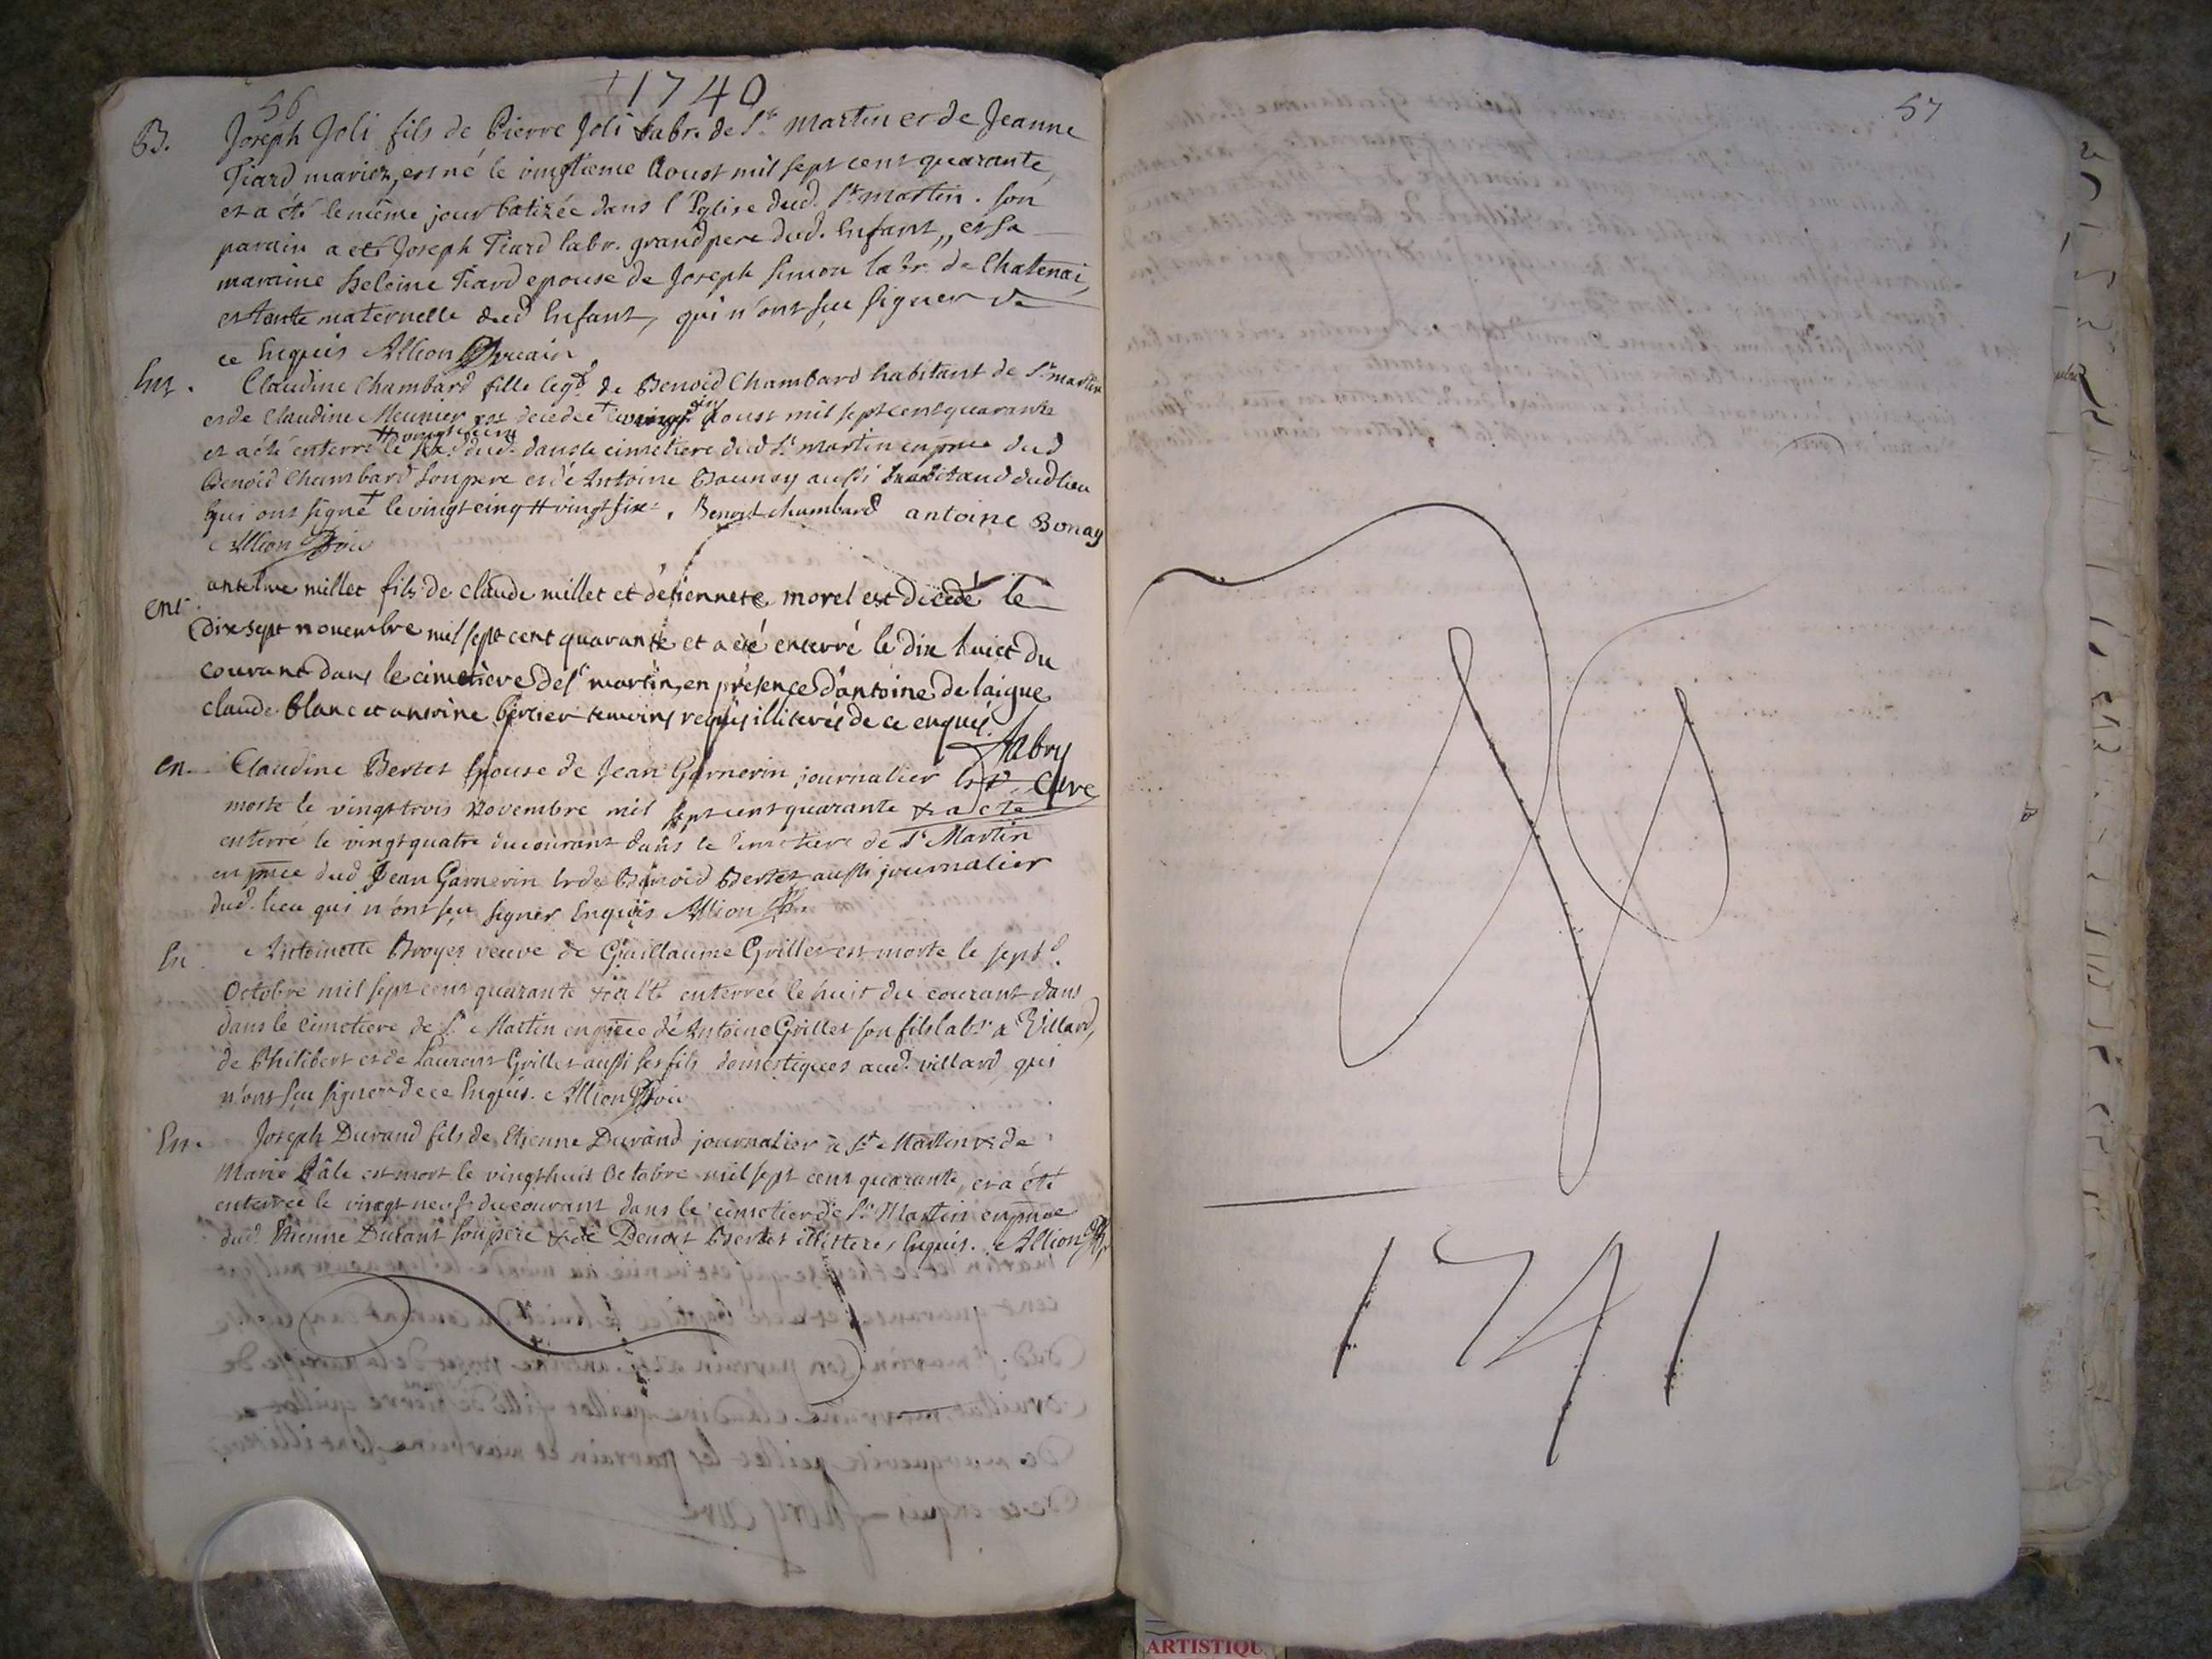 1740
56
B. Joseph Joli fils de Pierre Joli labr. de St. Martin et de Jeanne
Tiard mariez, est né le vingtieme Aoust mil sept cent quarante,
et a été le même jour batizée dans l'Eglise dud. St. Martin. Son
parain a eté Joseph Tiard labr. grand pere dud. Enfant, et sa
maraine Heleine Tiard epouse de Joseph Simon labr. de Chatenai,
et tante maternelle dud Enfant, qui n'ont sçu signer de
ce Enquis Allion
Claudine Chambard fille legt. de Benoid Chambard habitant de St. martin
et de Claudine Meunier est decedée Aoust mil sept cent quarante
et a été enterré le dud. dans le cimetiere dud St. Martin en pnce dud
Benoid Chambard son pere et de Antoine Bounay aussi dud lieu
qui ont signé le vingt cinq # vingt six. Benoit chambard antoine Bonay
Allion
ent. antelme millet fils de claude millet et detiennete morel est decedé le
dix sept novembre mil sept cent quarante et a été enterré le dix huict du
courant dans le cimetiere de st martin, en présence d'antoine de laigue
claude blanc et antoine bercier temoins requis illiterés de ce enquis.
Fabry
Curé
en. Claudine Bertet Epouse de Jean Garnerin journalier est
morte le vingt trois Novembre mil sept cent quarante & a eté
enterré le vingt quatre du courant dans le Cimetiere de St Martin
en pnce dud Jean Garnerin et de Benoid Bertet aussi journalier
dud. lieu qui n'ont sçu signer Enquis Allion
En. Antoinette Broyer veuve de Guillaume Grillet est morte le sept
Octobre mil sept cent quarante & a Eté enterrée le huit du courant dans
dans le Cimetiere de St. Martin en pnce de Antoine Grillet son fils labr. a Villard,
de Philibert et de Laurent Grillet aussi ses fils domestiques aud. villard, qui
n'ont sçu signer de ce Enquis. Allion
En. Joseph Durand fils de Etienne Durand journalier à St. Martin & de
Marie Pâle est mort le vingthuit Octobre mil sept cent quarante, et a été
enterrée le vingt neuf du courant dans le cimetier de St. Martin en pnce
dud. Etienne Durant son pere & de Benoit Bertet illitteres Enquis. Allion
57
1741
ARTISTIQU